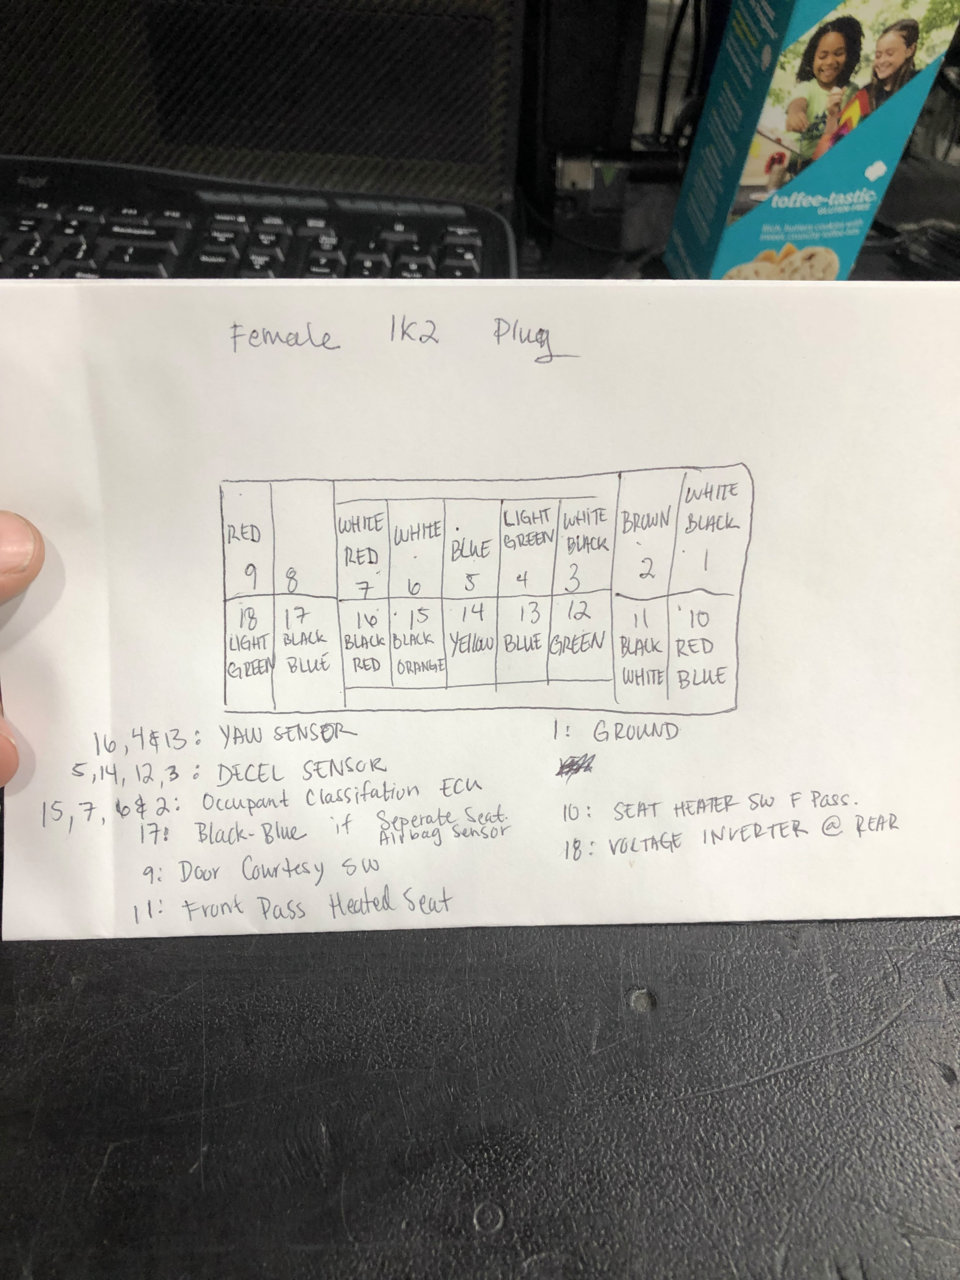 toffee-tastic
GLUTEN-FREE
Rich, buttery cookies with
sweet, crunchy toffee bits
Female 1K2 Plug
RED 9
8
WHITE RED 7
WHITE 6
BLUE 5
LIGHT GREEN 4
WHITE BLACK 3
BROWN 2
WHITE BLACK 1
18 LIGHT GREEN
17 BLACK BLUE
16 BLACK RED
15 BLACK ORANGE
14 YELLOW
13 BLUE
12 GREEN
11 BLACK WHITE
10 RED BLUE
16, 4 & 13: YAW SENSOR
5, 14, 12, 3: DECEL SENSOR
15, 7, 6 & 2: Occupant Classifation ECU
17: Black-Blue if Seperate Seat Airbag Sensor
9: Door Courtesy SW
11: Front Pass Heated Seat
1: GROUND
10: SEAT HEATER SW F Pass.
18: VOLTAGE INVERTER @ REAR